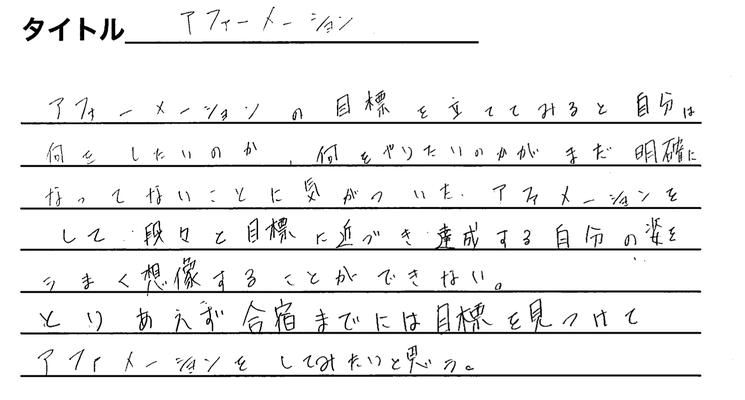 タイトル アファーメーション
アファーメーションの目標を立ててみると自分は
何をしたいのか、何をやりたいのかがまだ明確に
なってないことに気がついた。アファメーションを
して段々と目標に近づき達成する自分の姿を
うまく想像することができない。
とりあえず合宿までには目標を見つけて
アファメーションをしてみたいと思う。